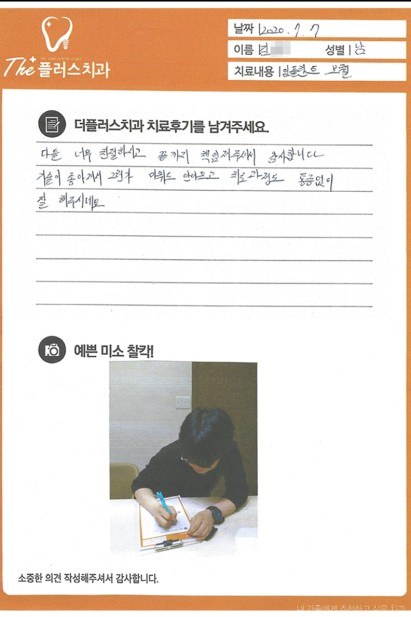 The+플러스치과
날짜 2020. 7. 7
이름 김 성별 남
치료내용 임플란트
더플러스치과 치료후기를 남겨주세요.
다들 너무 친절하시고 끝까지 책임져주셔서 감사합니다
기술이 좋아져서 그런가 마취도 안아프고 치료과정도 통증없이
잘 해주시네요
예쁜 미소 찰칵!
소중한 의견 작성해주셔서 감사합니다.